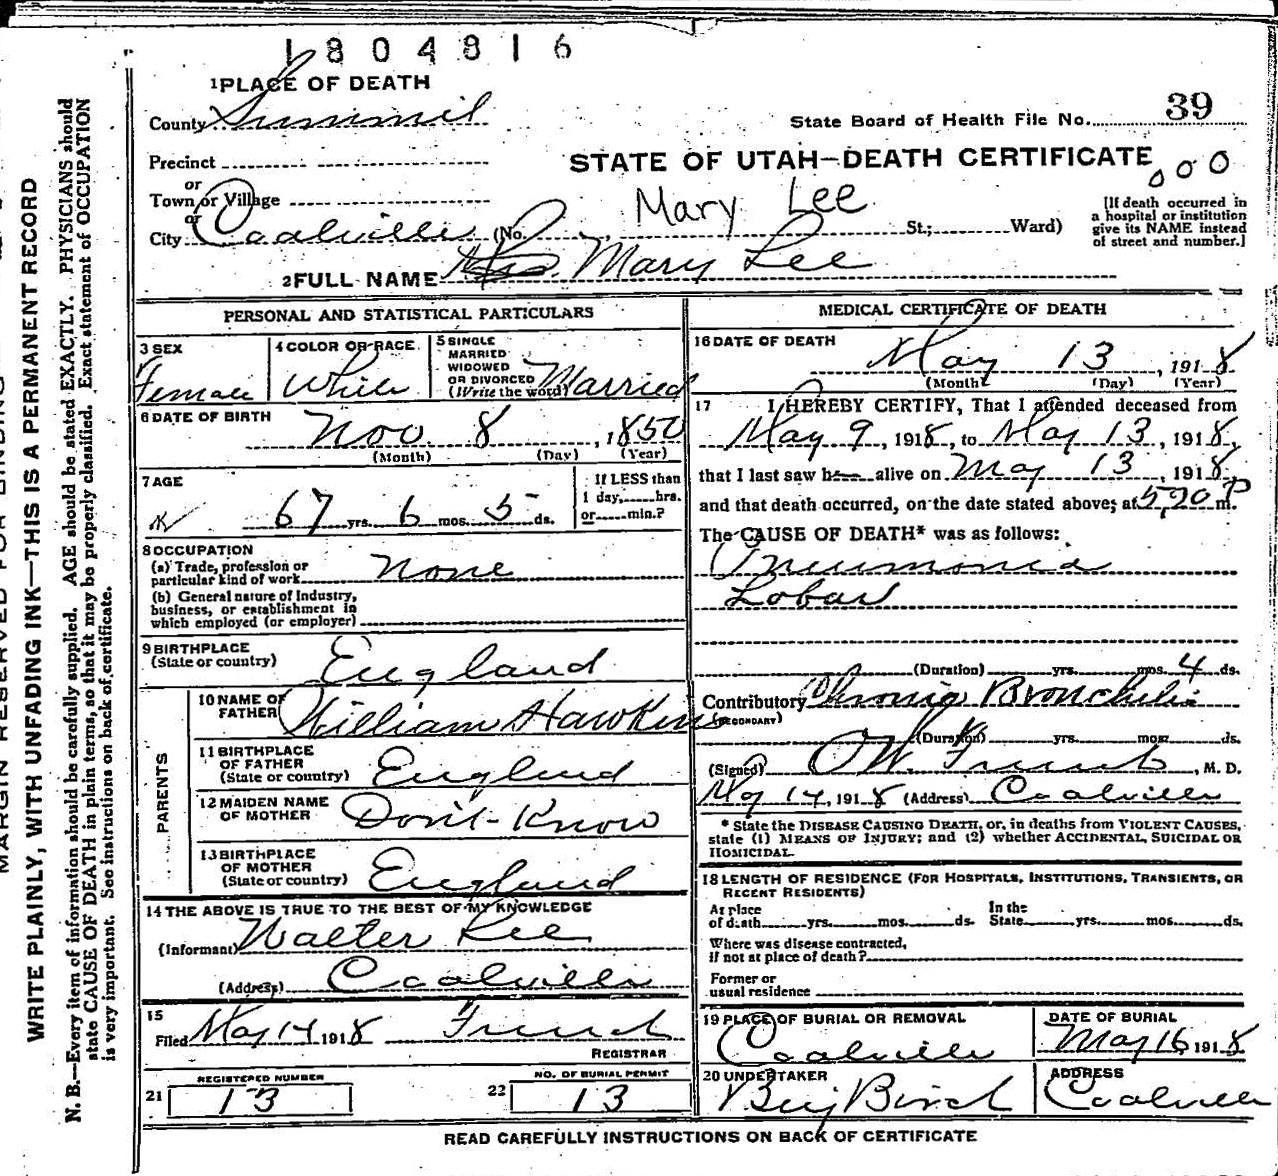 1804816
1 PLACE OF DEATH
County Summit
State Board of Health File No. 39
Precinct
STATE OF UTAH—DEATH CERTIFICATE
000
or
Town or Village
or
City Coalville (No. St.; Ward)
Mary Lee
[If death occurred in
a hospital or institution
give its NAME instead
of street and number.]
2 FULL NAME Mrs. Mary Lee
PERSONAL AND STATISTICAL PARTICULARS
3 SEX
Female
4 COLOR OR RACE
White
5 SINGLE
MARRIED
WIDOWED
OR DIVORCED
(Write the word) Married
6 DATE OF BIRTH
Nov 8, 1850
(Month) (Day) (Year)
7 AGE
67 yrs. 6 mos. 5 ds.
If LESS than
1 day, hrs.
or min.?
8 OCCUPATION
(a) Trade, profession or
particular kind of work None
(b) General nature of Industry,
business, or establishment in
which employed (or employer)
9 BIRTHPLACE
(State or country) England
PARENTS
10 NAME OF
FATHER William Hawkins
11 BIRTHPLACE
OF FATHER
(State or country) England
12 MAIDEN NAME
OF MOTHER Don't-Know
13 BIRTHPLACE
OF MOTHER
(State or country) England
14 THE ABOVE IS TRUE TO THE BEST OF MY KNOWLEDGE
(Informant) Walter Lee
(Address) Coalville
15
Filed May 14 1918 French
REGISTRAR
REGISTERED NUMBER
21 13
NO. OF BURIAL PERMIT
22 13
MEDICAL CERTIFICATE OF DEATH
16 DATE OF DEATH
May 13, 1918
(Month) (Day) (Year)
17 I HEREBY CERTIFY, That I attended deceased from
May 9, 1918, to May 13, 1918,
that I last saw h alive on May 13, 1918
and that death occurred, on the date stated above; at 5,20 P m.
The CAUSE OF DEATH* was as follows:
Pneumonia
Lobar
(Duration) yrs. mos. 4 ds.
Contributory Chronic Bronchitis
(SECONDARY)
(Duration) yrs. mos. ds.
(Signed) O W. French, M. D.
May 14, 1918 (Address) Coalville
* State the DISEASE CAUSING DEATH, or, in deaths from VIOLENT CAUSES,
state (1) MEANS OF INJURY; and (2) whether ACCIDENTAL, SUICIDAL OR
HOMICIDAL.
18 LENGTH OF RESIDENCE (FOR HOSPITALS, INSTITUTIONS, TRANSIENTS, OR
RECENT RESIDENTS)
At place
of death yrs. mos. ds. In the
State yrs. mos. ds.
Where was disease contracted,
if not at place of death?
Former or
usual residence
19 PLACE OF BURIAL OR REMOVAL
Coalville
DATE OF BURIAL
May 16, 1918
20 UNDERTAKER
Benj Birch
ADDRESS
Coalville
READ CAREFULLY INSTRUCTIONS ON BACK OF CERTIFICATE
MARGIN RESERVED FOR BINDING
WRITE PLAINLY, WITH UNFADING INK—THIS IS A PERMANENT RECORD
N. B.—Every item of information should be carefully supplied. AGE should be stated EXACTLY. PHYSICIANS should
state CAUSE OF DEATH in plain terms, so that it may be properly classified. Exact statement of OCCUPATION
is very important. See instructions on back of certificate.